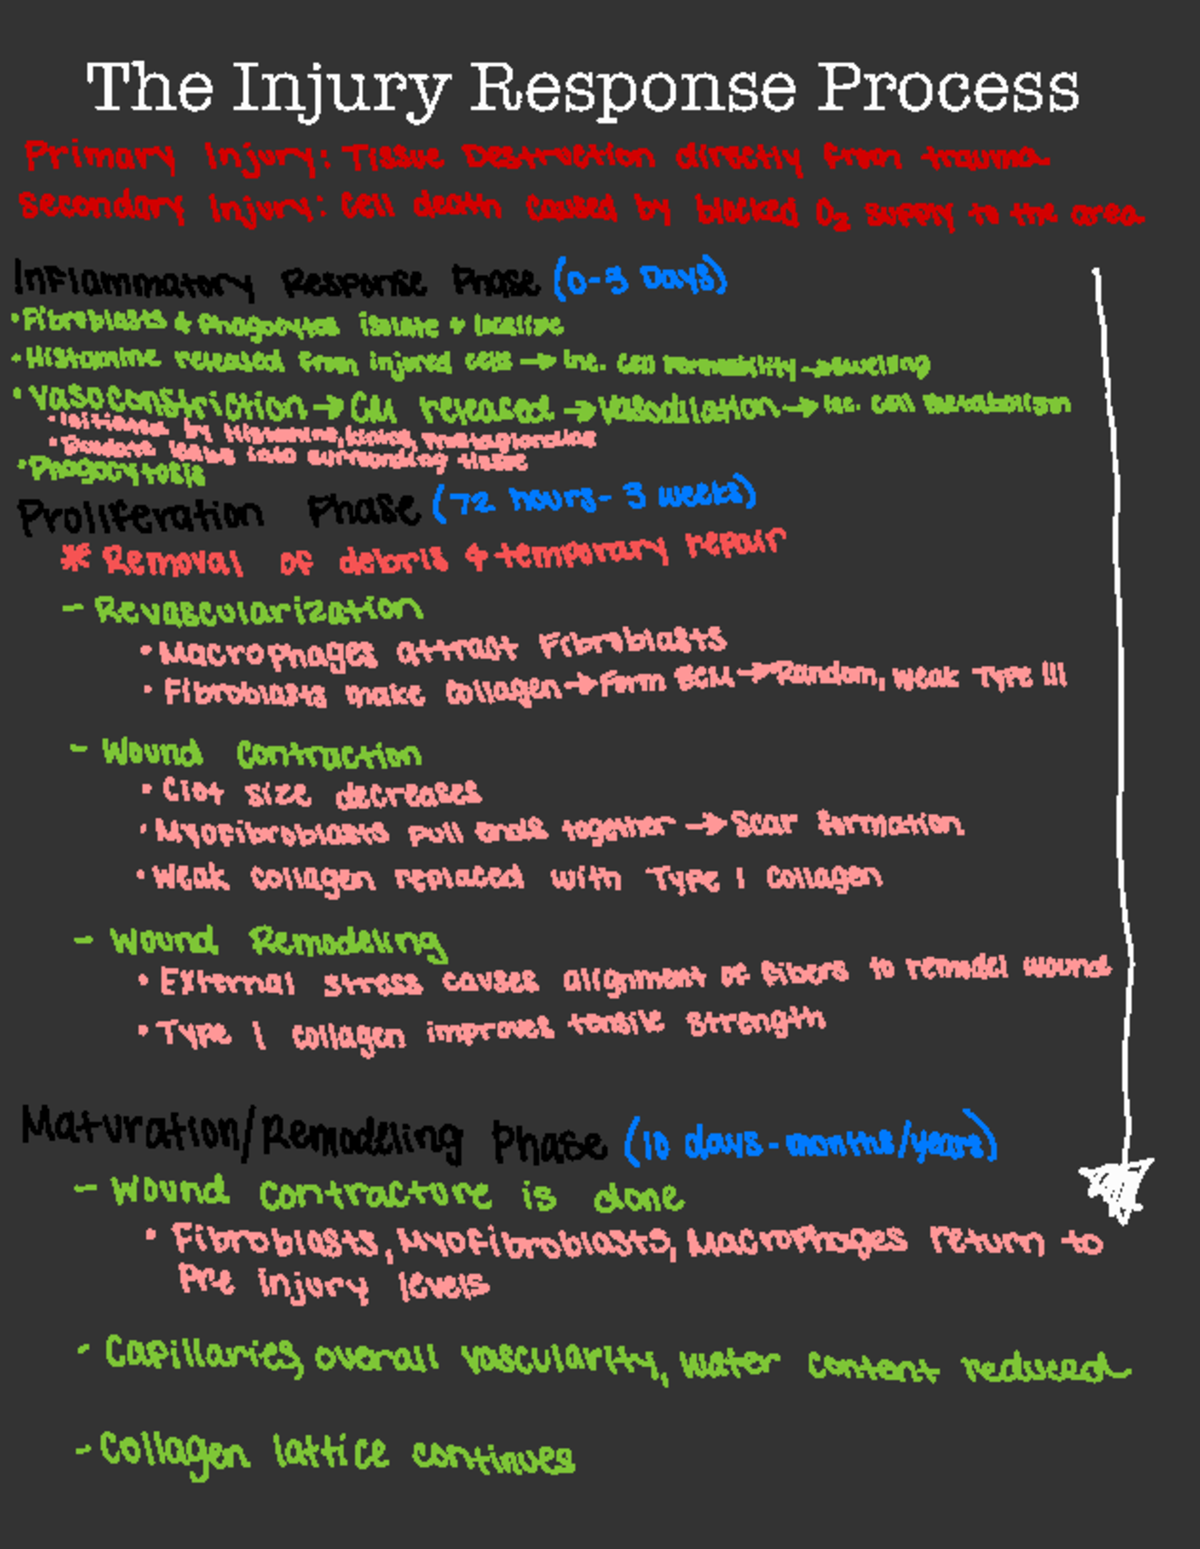 The Injury Response Process
Primary Injury: Tissue Destruction directly from trauma
Secondary Injury: Cell death caused by blocked O₂ supply to the area
Inflammatory Response Phase (0-3 Days)
• Fibroblasts & Phagocytes isolate + localize
• Histamine released from injured cells → Inc. cell permeability → swelling
• Vasoconstriction → CM released → Vasodilation → Inc. cell metabolism
• Initiated by Histamine, kinins, Prostaglandins
• Exudate leaks into surrounding tissue
• Phagocytosis
Proliferation Phase (72 hours - 3 weeks)
* Removal of debris & temporary repair
- Revascularization
• Macrophages attract Fibroblasts
• Fibroblasts make collagen → Form ECM → Random, weak Type III
- Wound contraction
• Clot size decreases
• Myofibroblasts pull ends together → Scar formation
• Weak collagen replaced with Type I Collagen
- Wound Remodeling
• External stress causes alignment of fibers to remodel wound
• Type I collagen improves tensile strength
Maturation/Remodeling Phase (10 days - months/years)
- Wound contracture is done
• Fibroblasts, Myofibroblasts, Macrophages return to
Pre injury levels
- Capillaries, overall vascularity, water content reduced
- Collagen lattice continues